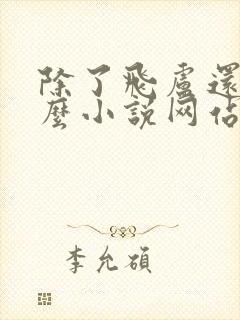 除了飛盧還
麼小説网佔
李允碩